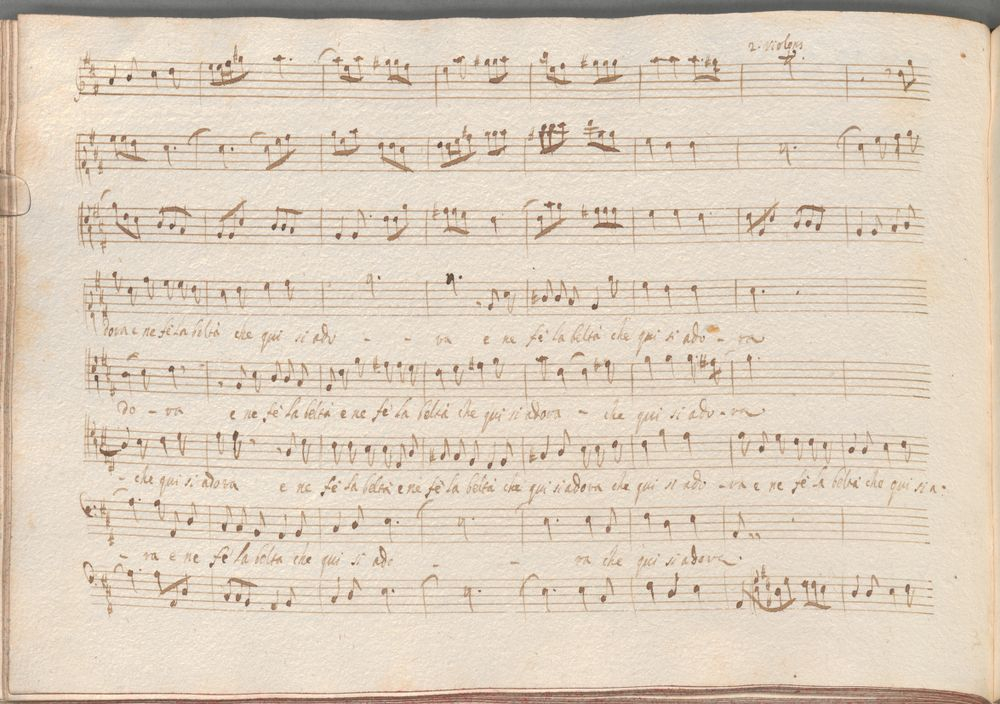 2. Violons
dova e ne fè la beltà che qui si ado - - va e ne fè la beltà che qui si ado - va
do - va e ne fè la beltà e ne fè la beltà che qui si adora - che qui si ado - va
- che qui si adora e ne fè la beltà e ne fè la beltà che qui si adora che qui si ado - va e ne fè la beltà che qui si a-
- va e ne fè la beltà che qui si ado - - va che qui si adora.